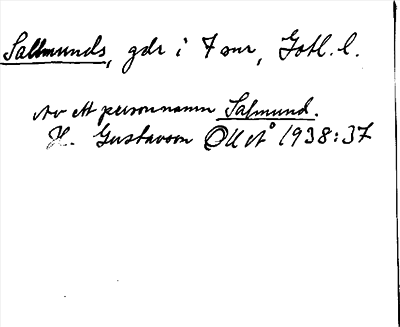 Sallmunds, gdr i 7 snr, Gotl. l.
Av ett personnamn Salmund.
H. Gustavson OUÅ 1938:37